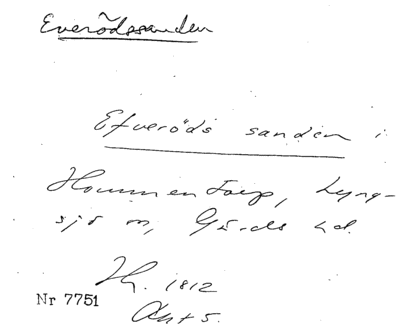 Everödssanden
Efveröds sanden i
Hommentorp, Lyng-
sjö sn, Gärds hd.
Hg. 1812
Akt 5.
Nr 7751